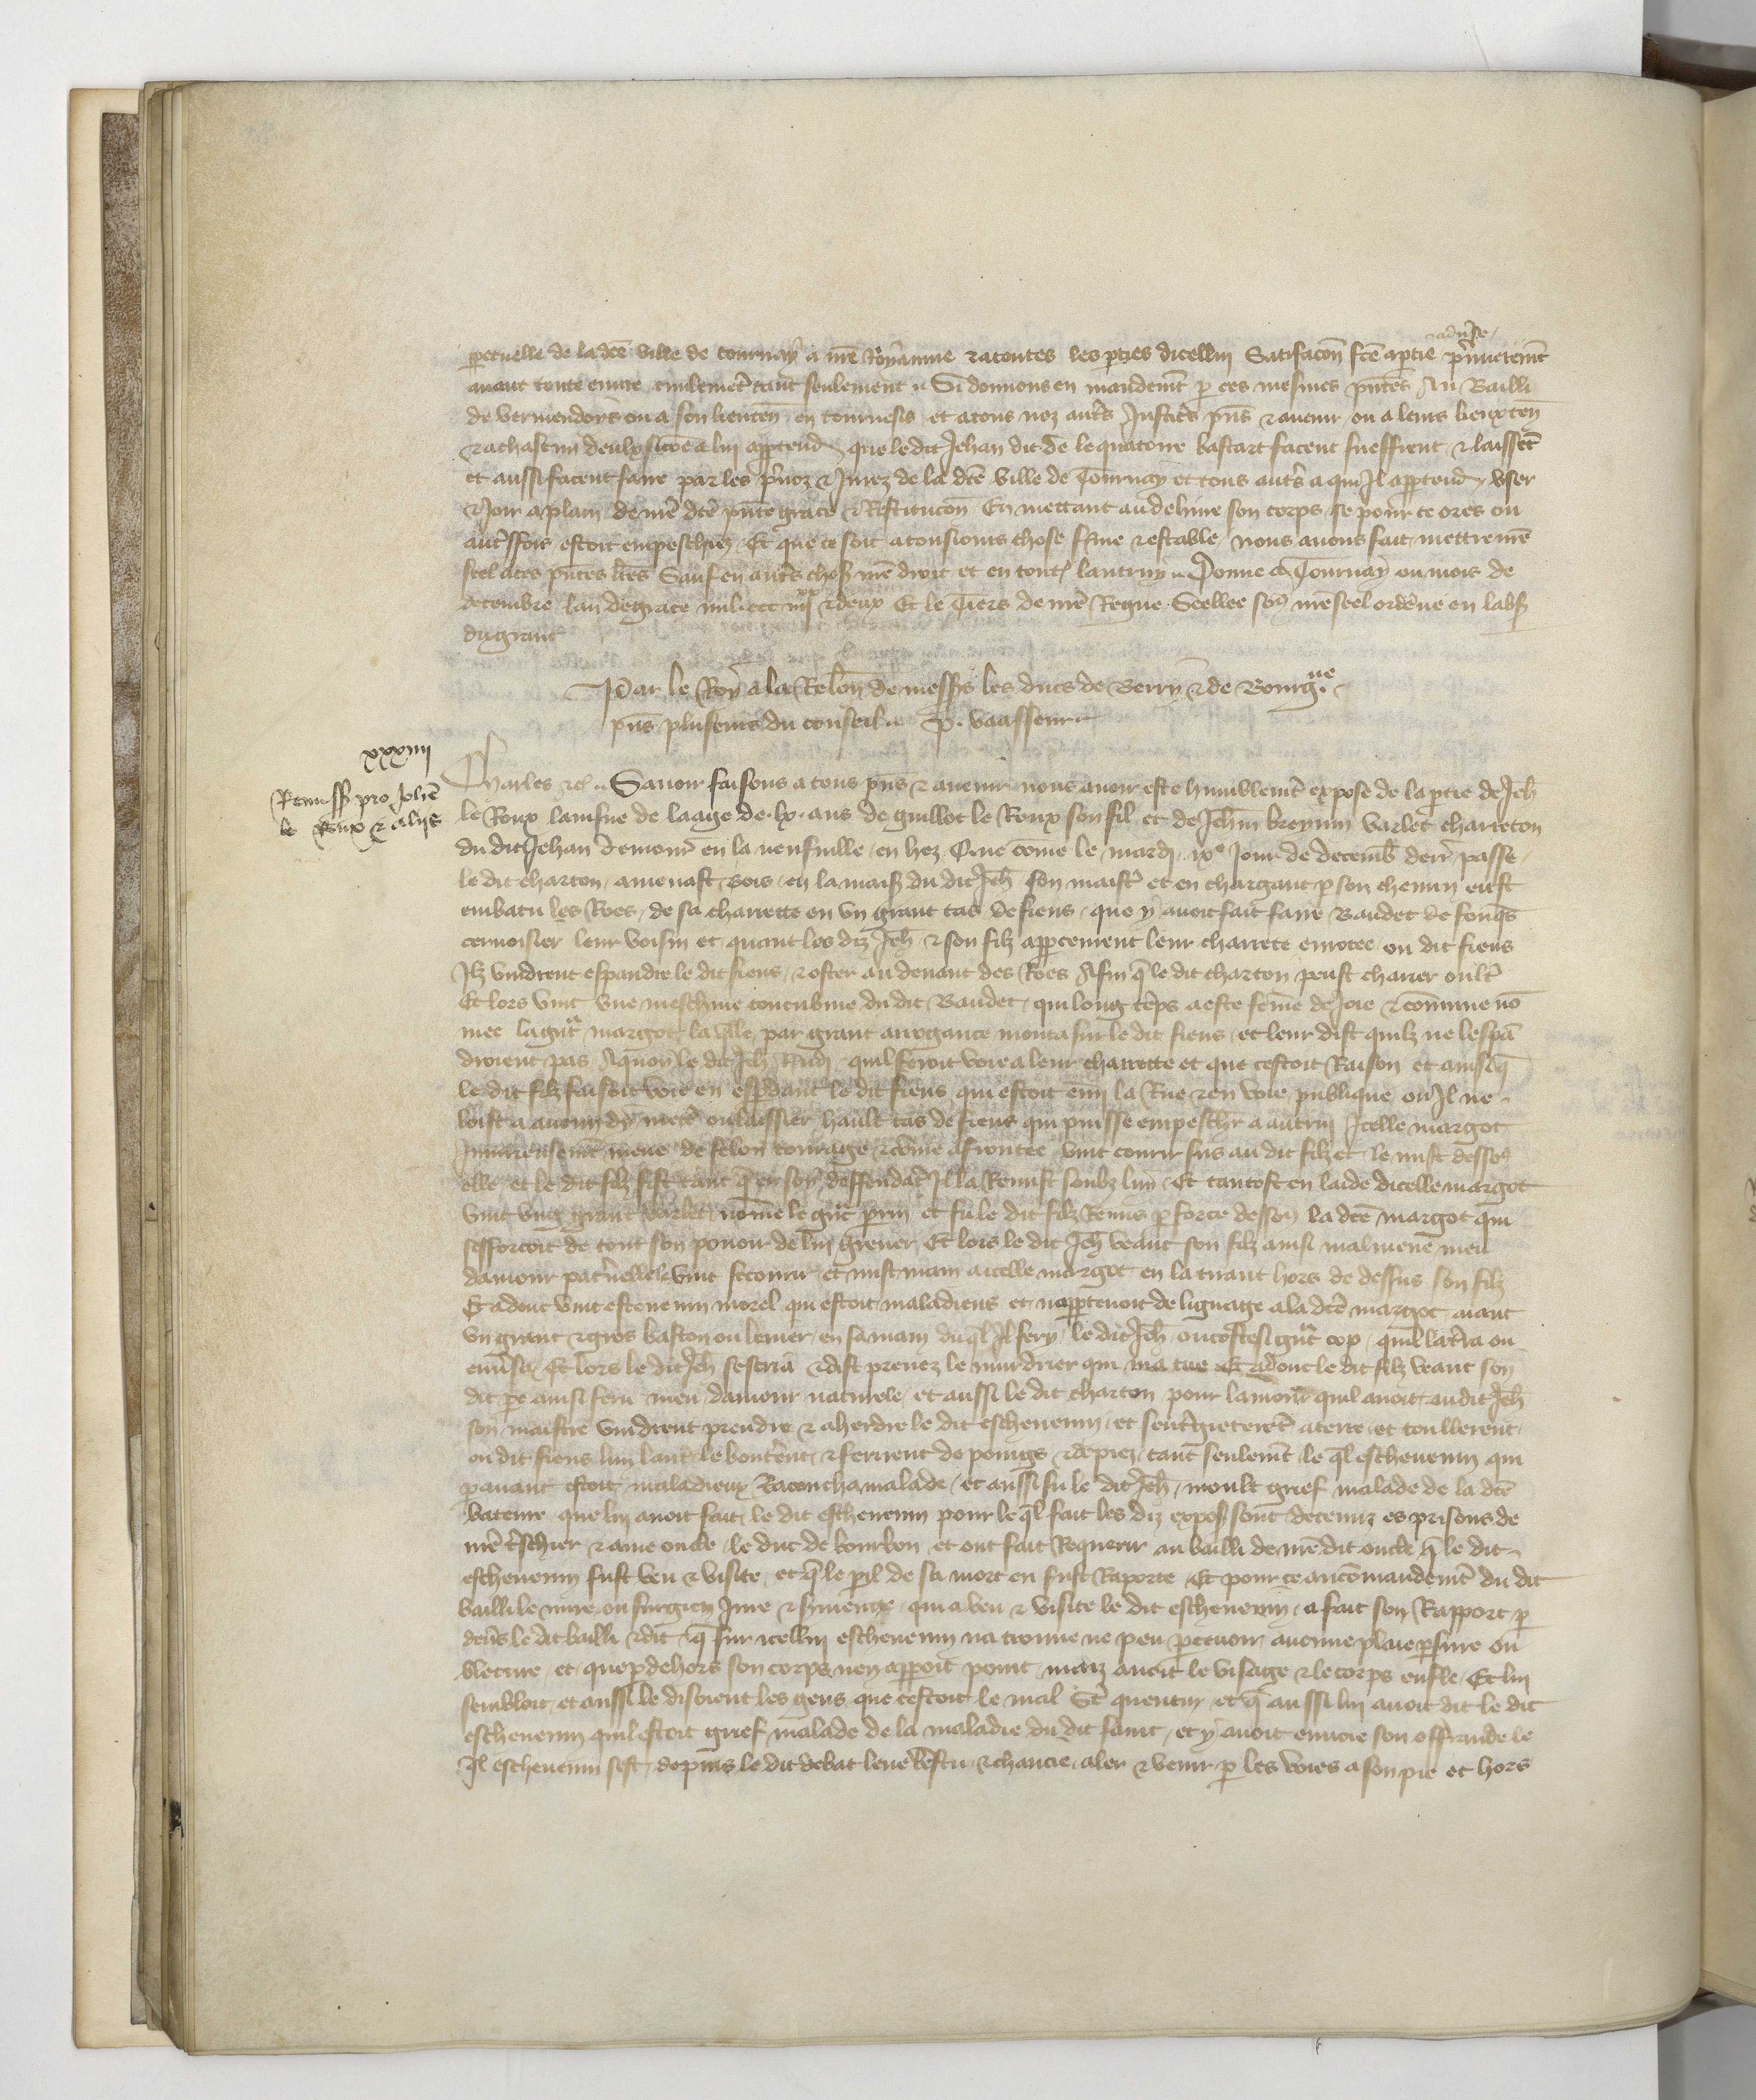 adu̾se
ꝑpetuelle de la dcē ville de tournay a nr̄e Royaume ⁊ a toutes les ꝑties dicellui Satifacōn fcē a ꝑtie p̾mieremēt
auant toute euure ciuilemēt tant seulement Si donnons en mandemēt ꝑ ces mesmes p̄ntes Au Bailli
de vermendois ou a son lieuten̄ en tournesis et a tous noz autr̄s Justic̄s p̄ns ⁊ auenir ou a leurs lieuxten̄
⁊ a chascun deulx si cōe a lui apꝑtendͬ que le dit Jehan dit de lequatoire bastart facent sueffrent ⁊ laissēt
et aussi facent faire par les p̾uoz ⁊ Jurez de la dcē ville de Tournay et tous autr̄s a qui Il apꝑtendͬ vser
⁊ Joir a plain de nr̄e dcē p̄nte grace ⁊ Restitucōn En mettant au deliure son corps se pour ce ores ou
autr̄ffois estoit empeschiez Et que ce soit a tousiours chose ferme ⁊ estable nous auons fait mettre nr̄e
seel a ces p̄ntes lr̄es Sauf en autr̄s choses nr̄e droit et en toutes lautruy Donne a Tournay ou mois de
decembre lan de grace mil ccc iiijxx ⁊ deux Et le Tiers de nr̄e Regne Seellee soubz nr̄e seel ordēne en labs̄
du grant
Par le Roy a la Relōn de messs̄ les ducs de Berry ⁊ de Bourgue
p̄ns pluseurs du conseil P. vaasseur
xxxiiij
Remiss̄ pro Johē
le Roux ⁊ alijs
Charles ⁊c̄ Sauoir faisons a tous p̄ns ⁊ auenir nous auoir este humblemēt expose de la ꝑtie de Jeh̄
le Roux lainsne de laage de lx ans de guillot le Roux son fil et de Jeh̄in breynin varlet charreton
du dit Jehan demour̄ en la neufuille en hez Que cōme le mardi ixe Jour de decemb̄ derr̄ passe
le dit charton amenast Bois en la mais̄ du dit Jeh̄ son maistr̄ et en chargant ꝑ son chemin eust
embatu les Roes de sa charrette en vn grant tas de fiens que y auoit fait faire Baudet de fonq̄s
ceruoisier leur voisin et quant les diz Jeh̄ ⁊ son filz apꝑceurent leur charrete enrotee ou dit fiens
Ilz vindrent espandre le dit fiens ⁊ oster au deuant des Roes Afin q̄ le dit charton peust charrer oultr̄
Et lors vint vne meschine concubine du dit Baudet qui long tēps a este femē de Joie ⁊ cōmune nō
mee la grāt margot la quelle par grant arrogance monta sur le dit fiens et leur dist quilz ne lespā
droient pas Aquoy le dit Jeh̄ Rndi quil feroit voie a leur charrette et que cestoit Raison et ainsi q̄
le dit filz faisoit voie en espādant le dit fiens qui estoit enmi la Rue ⁊ en voie publique ou Il ne
loist a aucun dy metr̄e ou laissier hault tas de fiens qui puisse empeschr̄ a autrui Icelle margot
Iniurieusemēt meue de felon courage ⁊ cōme afrontee vint courir sus au dit filz et le mist dessoubz
elle et le dit filz fist tant q̄ en soy deffendāt Il la Remist soubz lui Et tantost en laide dicelle margot
vint vng grant varlet nomē le grāt perrin et fu le dit filz Remis ꝑ force dessoubz la dcē margot qui
sefforcoit de tout son pouoir de lui greuer Et lors le dit Jeh̄ veant son filz ainsi malmene meu
damour pat̾nelle le vint secourir et mist main a icelle margot en la tirant hors de dessus son filz
Et adonc vint estouenin morel qui estoit maladieus et napꝑtenoit de lignage a la dcē margot aiant
vn grant ⁊ gros baston ou leuier en sa main du q̄l Il fery le dit Jeh̄ ou coste si grāt cop quil latr̄ra ou
enuersa Et lors le dit Jeh̄ sescria ⁊ dist prenez le murdrier qui ma tue Et adonc le dit filz veant son
dit pe̾ ainsi feru meu damour naturele et aussi le dit charton pour lamour quil auoit au dit Jeh̄
son maistre vindrent prendre ⁊ aherdre le dit escheuenin et sentr̄gieterēt a terre et toullerent
ou dit fiens lun lautr̄ le bouterēt ⁊ ferirent de poings ⁊ de piez tant seulemēt le q̄l escheuenin qui
ꝑauant estoit maladieux Racoucha malade et aussi fu le dit Jeh̄ moult grief malade de la dcē
bateure que lui auoit fait le dit escheuenin pour le q̄l fait les diz expos̄ sont detenuz es prisons de
nr̄e tr̄schier ⁊ ame oncle le duc de bourbon et ont fait Requerir au bailli de nr̄e dit oncle q̄ le dit
escheuenin fust veu ⁊ visite et q̄ le ꝑil de sa mort en fust Raporte Et pour ce au cōmandemēt du dit
bailli le mire ou surgien Jure ⁊ sermente qui a veu ⁊ visite le dit escheuenin a fait son Rapport ꝑ
deu̾s le dit bailli ⁊ dit q̄ sur icellui escheuenin na trouue ne peu ꝑceuoir aucune plaie ꝑsure ou
bleceure et que ꝑ dehors son corps nen apꝑoit point maiz auoit le visage ⁊ le corps enfle Et lui
sembloit et aussi le disoient les gens que cestoit le mal St̄ quentin et q̄ aussi lui auoit dit le dit
escheuenin quil estoit grief malade de la maladie du dit saint et y auoit enuoie son offrande le
q̄l escheuenin sest depuis le dit debat leue vestu ⁊ chaucie aler ⁊ venir ꝑ les voies a son pie et hors